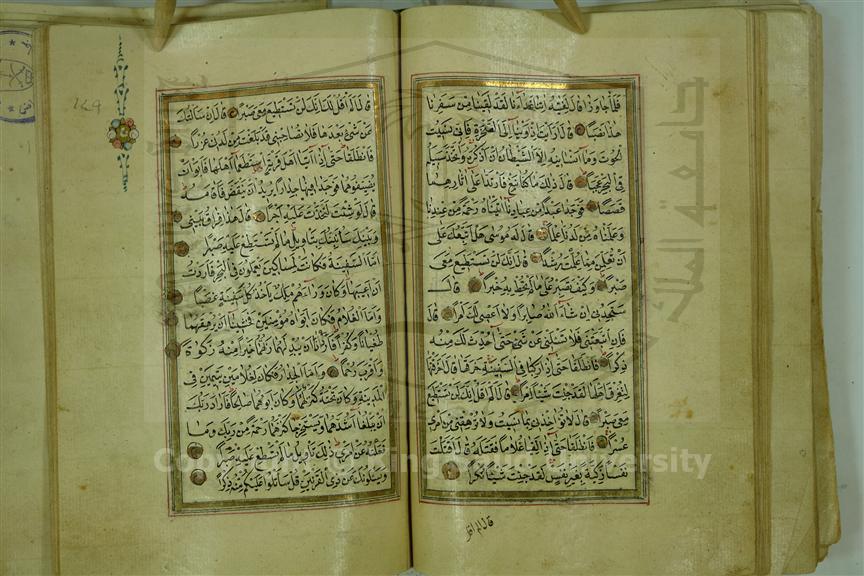 فلما جاوزا قال لفتيه اتنا غداءنا لقد لقينا من سفرنا
هذا نصبا قال ارايت اذ اوينا الى الصخرة فاني نسيت
الحوت وما انسانيه الا الشيطان ان اذكره واتخذ سبيله
في البحر عجبا قال ذلك ما كنا نبغ فارتدا على اثارهما
قصصا فوجدا عبدا من عبادنا اتيناه رحمة من عندنا
وعلمناه من لدنا علما قال له موسى هل اتبعك على
ان تعلمن مما علمت رشدا قال انك لن تستطيع معي
صبرا وكيف تصبر على ما لم تحط به خبرا قال
ستجدني ان شاء الله صابرا ولا اعصي لك امرا قال
فان اتبعتني فلا تسئلني عن شيء حتى احدث لك منه
ذكرا فانطلقا حتى اذا ركبا في السفينة خرقها قال اخرقتها
لتغرق اهلها لقد جئت شيئا امرا قال الم اقل انك لن تستطيع
معي صبرا قال لا تؤاخذني بما نسيت ولا ترهقني من امري
عسرا فانطلقا حتى اذا لقيا غلاما فقتله قال اقتلت
نفسا زكية بغير نفس لقد جئت شيئا نكرا
قال الم اقل
قال الم اقل لك انك لن تستطيع معي صبرا قال ان سالتك
عن شيء بعدها فلا تصاحبني قد بلغت من لدني عذرا
فانطلقا حتى اذا اتيا اهل قرية استطعما اهلها فابوا ان
يضيفوهما فوجدا فيها جدارا يريد ان ينقض فاقامه
قال لو شئت لتخذت عليه اجرا قال هذا فراق بيني
وبينك سانبئك بتاويل ما لم تستطع عليه صبرا
اما السفينة فكانت لمساكين يعملون في البحر فاردت
ان اعيبها وكان وراءهم ملك ياخذ كل سفينة غصبا
واما الغلام فكان ابواه مؤمنين فخشينا ان يرهقهما
طغيانا وكفرا فاردنا ان يبدلهما ربهما خيرا منه زكوة
واقرب رحما واما الجدار فكان لغلامين يتيمين في
المدينة وكان تحته كنز لهما وكان ابوهما صالحا فاراد ربك
ان يبلغا اشدهما ويستخرجا كنزهما رحمة من ربك وما
فعلته عن امري ذلك تاويل ما لم تسطع عليه صبرا
ويسئلونك عن ذي القرنين قل ساتلوا عليكم منه ذكرا
١٤٩
جامعة الملك سعود
Copyright © King Saud University